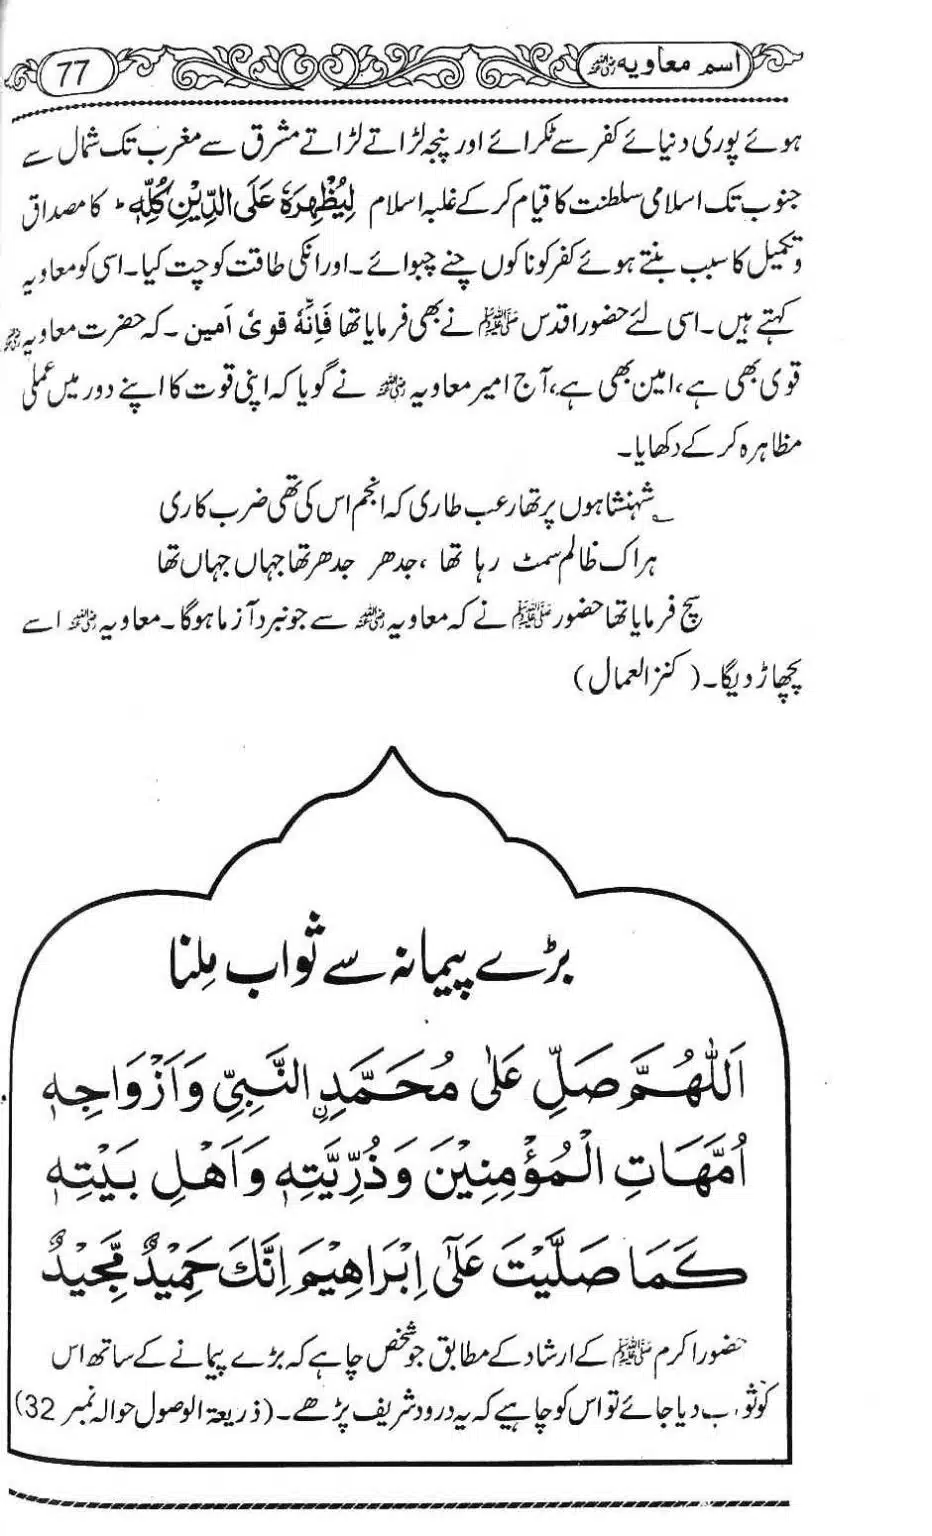 اسم معاویہ ؓ
77
ہوئے پوری دنیائے کفر سے ٹکرائے اور پنجہ لڑاتے لڑاتے مشرق سے مغرب تک شمال سے
جنوب تک اسلامی سلطنت کا قیام کر کے غلبہ اسلام لِيُظْهِرَهٗ عَلَی الدِّيْنِ كُلِّهٖ ۔ کا مصداق
و تکمیل کا سبب بنتے ہوئے کفر کو ناکوں چنے چبوائے۔ اور انکی طاقت کو چت کیا۔ اسی کو معاویہ
کہتے ہیں۔ اسی لئے حضور اقدس ﷺ نے بھی فرمایا تھا فَاِنَّهٗ قویٌ اَمین ۔ کہ حضرت معاویہ ؓ
قوی بھی ہے، امین بھی ہے، آج امیر معاویہ ؓ نے گویا کہ اپنی قوت کا اپنے دور میں عملی
مظاہرہ کر کے دکھایا۔
؎ شہنشاہوں پر تھا رعب طاری کہ انجم اس کی تھی ضرب کاری
ہر اک ظالم سمٹ رہا تھا ، جدھر جدھر تھا جہاں جہاں تھا
سچ فرمایا تھا حضور ﷺ نے کہ معاویہ ؓ سے جو نبرد آزما ہوگا۔ معاویہ ؓ اسے
پچھاڑ دیگا۔ (کنز العمال)
بڑے پیمانہ سے ثواب مِلنا
اَللّٰهُمَّ صَلِّ عَلٰی مُحَمَّدِنِ النَّبِيِّ وَاَزْوَاجِهٖ
اُمَّهَاتِ الْمُؤْمِنِيْنَ وَذُرِّيَّتِهٖ وَاَهْلِ بَيْتِهٖ
كَمَا صَلَّيْتَ عَلٰٓی اِبْرَاهِيْمَ اِنَّكَ حَمِيْدٌ مَّجِيْدٌ
حضور اکرم ﷺ کے ارشاد کے مطابق جو شخص چاہے کہ بڑے پیمانے کے ساتھ اس
کو ثواب دیا جائے تو اس کو چاہیے کہ یہ درود شریف پڑھے۔ (ذریعۃ الوصول حوالہ نمبر 32)